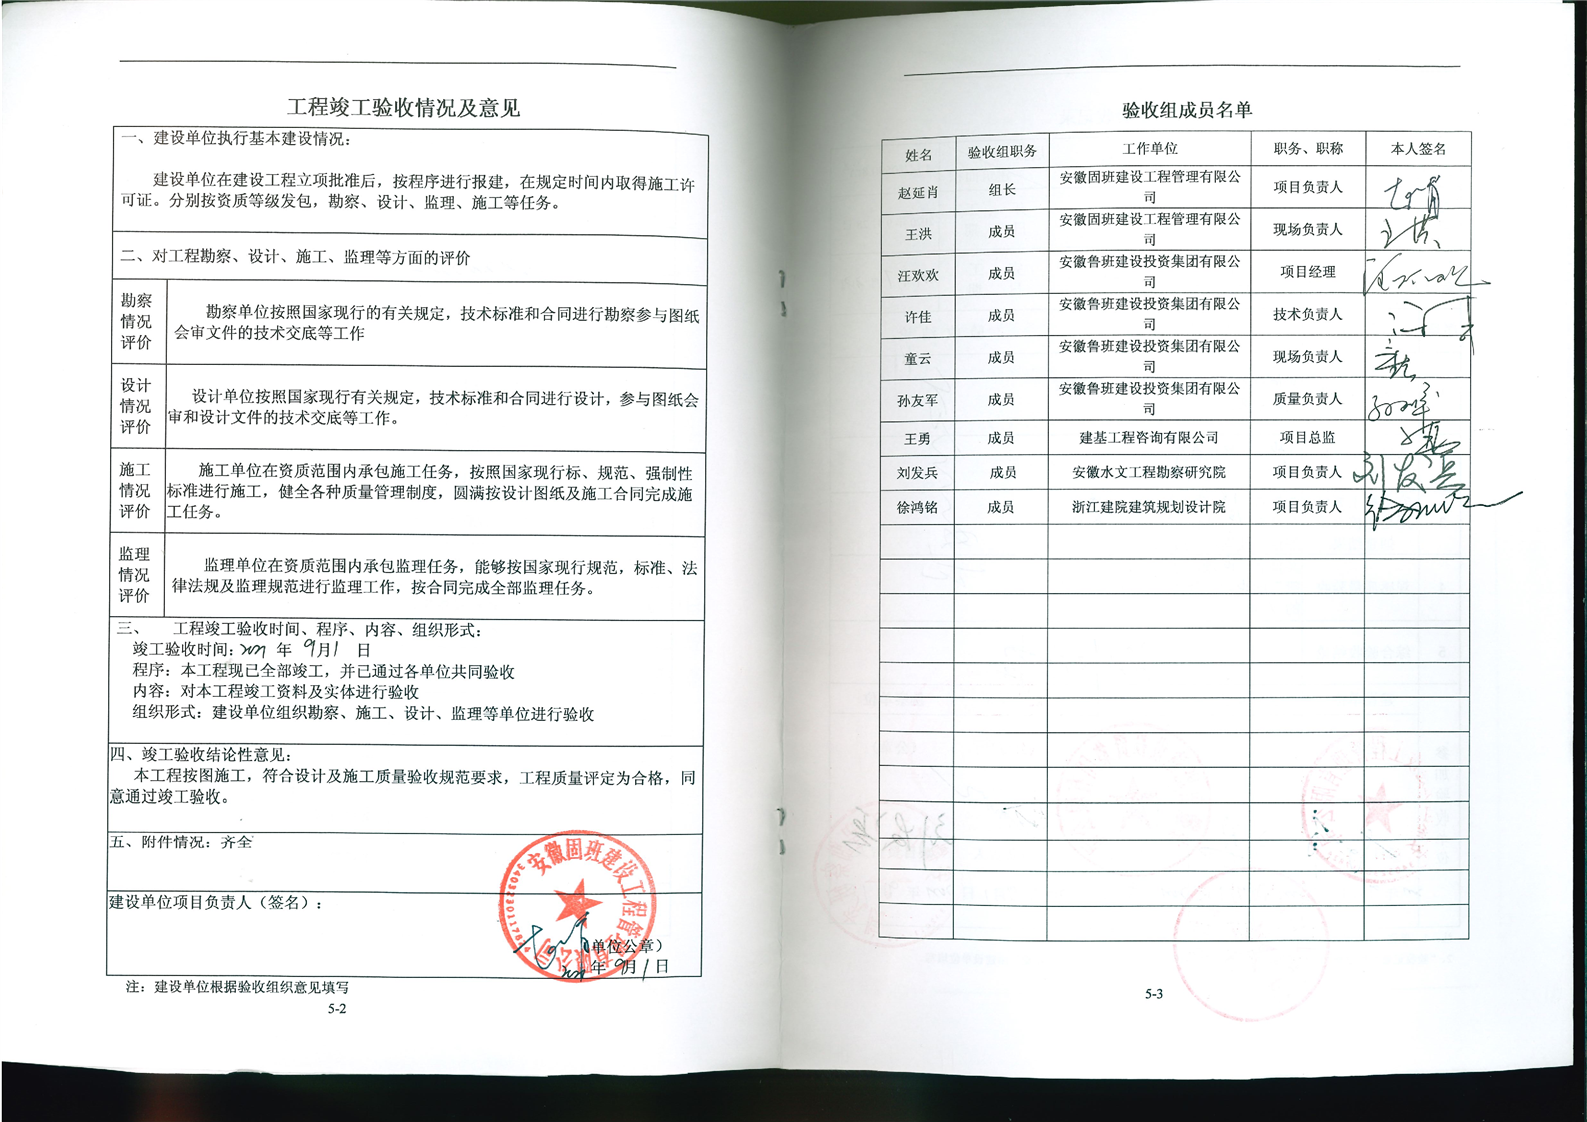 工程竣工验收情况及意见
一、建设单位执行基本建设情况：
建设单位在建设工程立项批准后，按程序进行报建，在规定时间内取得施工许
可证。分别按资质等级发包，勘察、设计、监理、施工等任务。
二、对工程勘察、设计、施工、监理等方面的评价
勘察
情况
评价
勘察单位按照国家现行的有关规定，技术标准和合同进行勘察参与图纸
会审文件的技术交底等工作
设计
情况
评价
设计单位按照国家现行有关规定，技术标准和合同进行设计，参与图纸会
审和设计文件的技术交底等工作。
施工
情况
评价
施工单位在资质范围内承包施工任务，按照国家现行标、规范、强制性
标准进行施工，健全各种质量管理制度，圆满按设计图纸及施工合同完成施
工任务。
监理
情况
评价
监理单位在资质范围内承包监理任务，能够按国家现行规范，标准、法
律法规及监理规范进行监理工作，按合同完成全部监理任务。
三、 工程竣工验收时间、程序、内容、组织形式：
竣工验收时间： 年 9月1 日
程序：本工程现已全部竣工，并已通过各单位共同验收
内容：对本工程竣工资料及实体进行验收
组织形式：建设单位组织勘察、施工、设计、监理等单位进行验收
四、竣工验收结论性意见：
本工程按图施工，符合设计及施工质量验收规范要求，工程质量评定为合格，同
意通过竣工验收。
五、附件情况：齐全
建设单位项目负责人（签名）：
安徽固班建设工程管理有限公司
（单位公章）
年 9月1日
注：建设单位根据验收组织意见填写
5-2
验收组成员名单
姓名 验收组职务 工作单位 职务、职称 本人签名
赵延肖 组长 安徽固班建设工程管理有限公司 项目负责人
王洪 成员 安徽固班建设工程管理有限公司 现场负责人 王洪
汪欢欢 成员 安徽鲁班建设投资集团有限公司 项目经理
许佳 成员 安徽鲁班建设投资集团有限公司 技术负责人
童云 成员 安徽鲁班建设投资集团有限公司 现场负责人
孙友军 成员 安徽鲁班建设投资集团有限公司 质量负责人
王勇 成员 建基工程咨询有限公司 项目总监
刘发兵 成员 安徽水文工程勘察研究院 项目负责人 刘发兵
徐鸿铭 成员 浙江建院建筑规划设计院 项目负责人
5-3